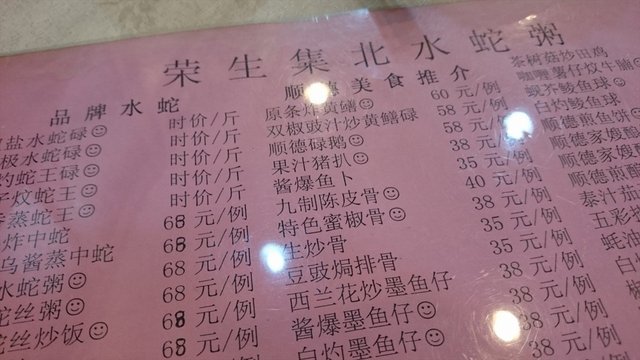 荣生集北水蛇粥
品牌水蛇
盐水蛇碌☺ 时价/斤
极水蛇碌☺ 时价/斤
灼蛇王碌☺ 时价/斤
炆蛇王☺ 时价/斤
蒸蛇王☺ 68元/例
炸中蛇 68元/例
乌酱蒸中蛇 68元/例
水蛇粥☺ 68元/例
蛇丝粥☺ 68元/例
蛇丝炒饭☺ 68元/例
顺德美食推介
原条炸黄鳝☺ 60元/例
双椒豉汁炒黄鳝碌 58元/例
顺德碌鹅☺ 58元/例
果汁猪扒☺ 38元/例
酱爆鱼卜 35元/例
九制陈皮骨☺ 40元/例
特色蜜椒骨☺ 38元/例
生炒骨 35元/例
豆豉焗排骨 35元/例
西兰花炒墨鱼仔 38元/例
酱爆墨鱼仔☺ 38元/例
白灼墨鱼仔☺ 38元/例
茶树菇炒田鸡
咖喱薯仔炆牛腩
蚬芥鲮鱼球☺
白灼鲮鱼球
顺德煎鱼饼
顺德家嫂
顺德煎
泰汁茄
五彩
蚝油
白灼